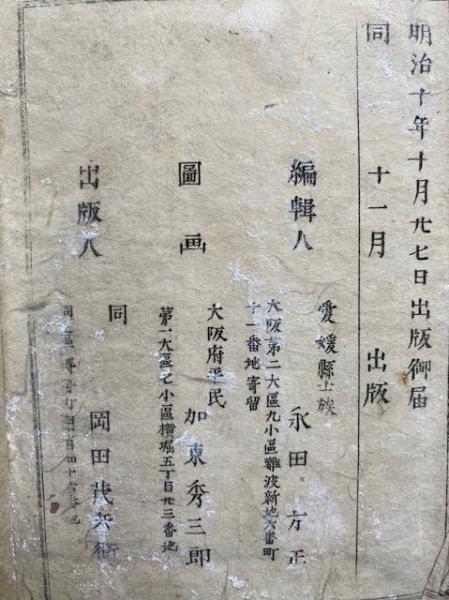 明治十年十月廿七日出版御届
同 十一月 出版
編輯人
愛媛縣士族
永田方正
大阪第二大區九小區難波新地六番町
十一番地寄留
圖画
大阪府平民
加東秀三郎
第一大區七小區横堀五丁目廿三番地
出版人
同
岡田茂兵衛
同 區